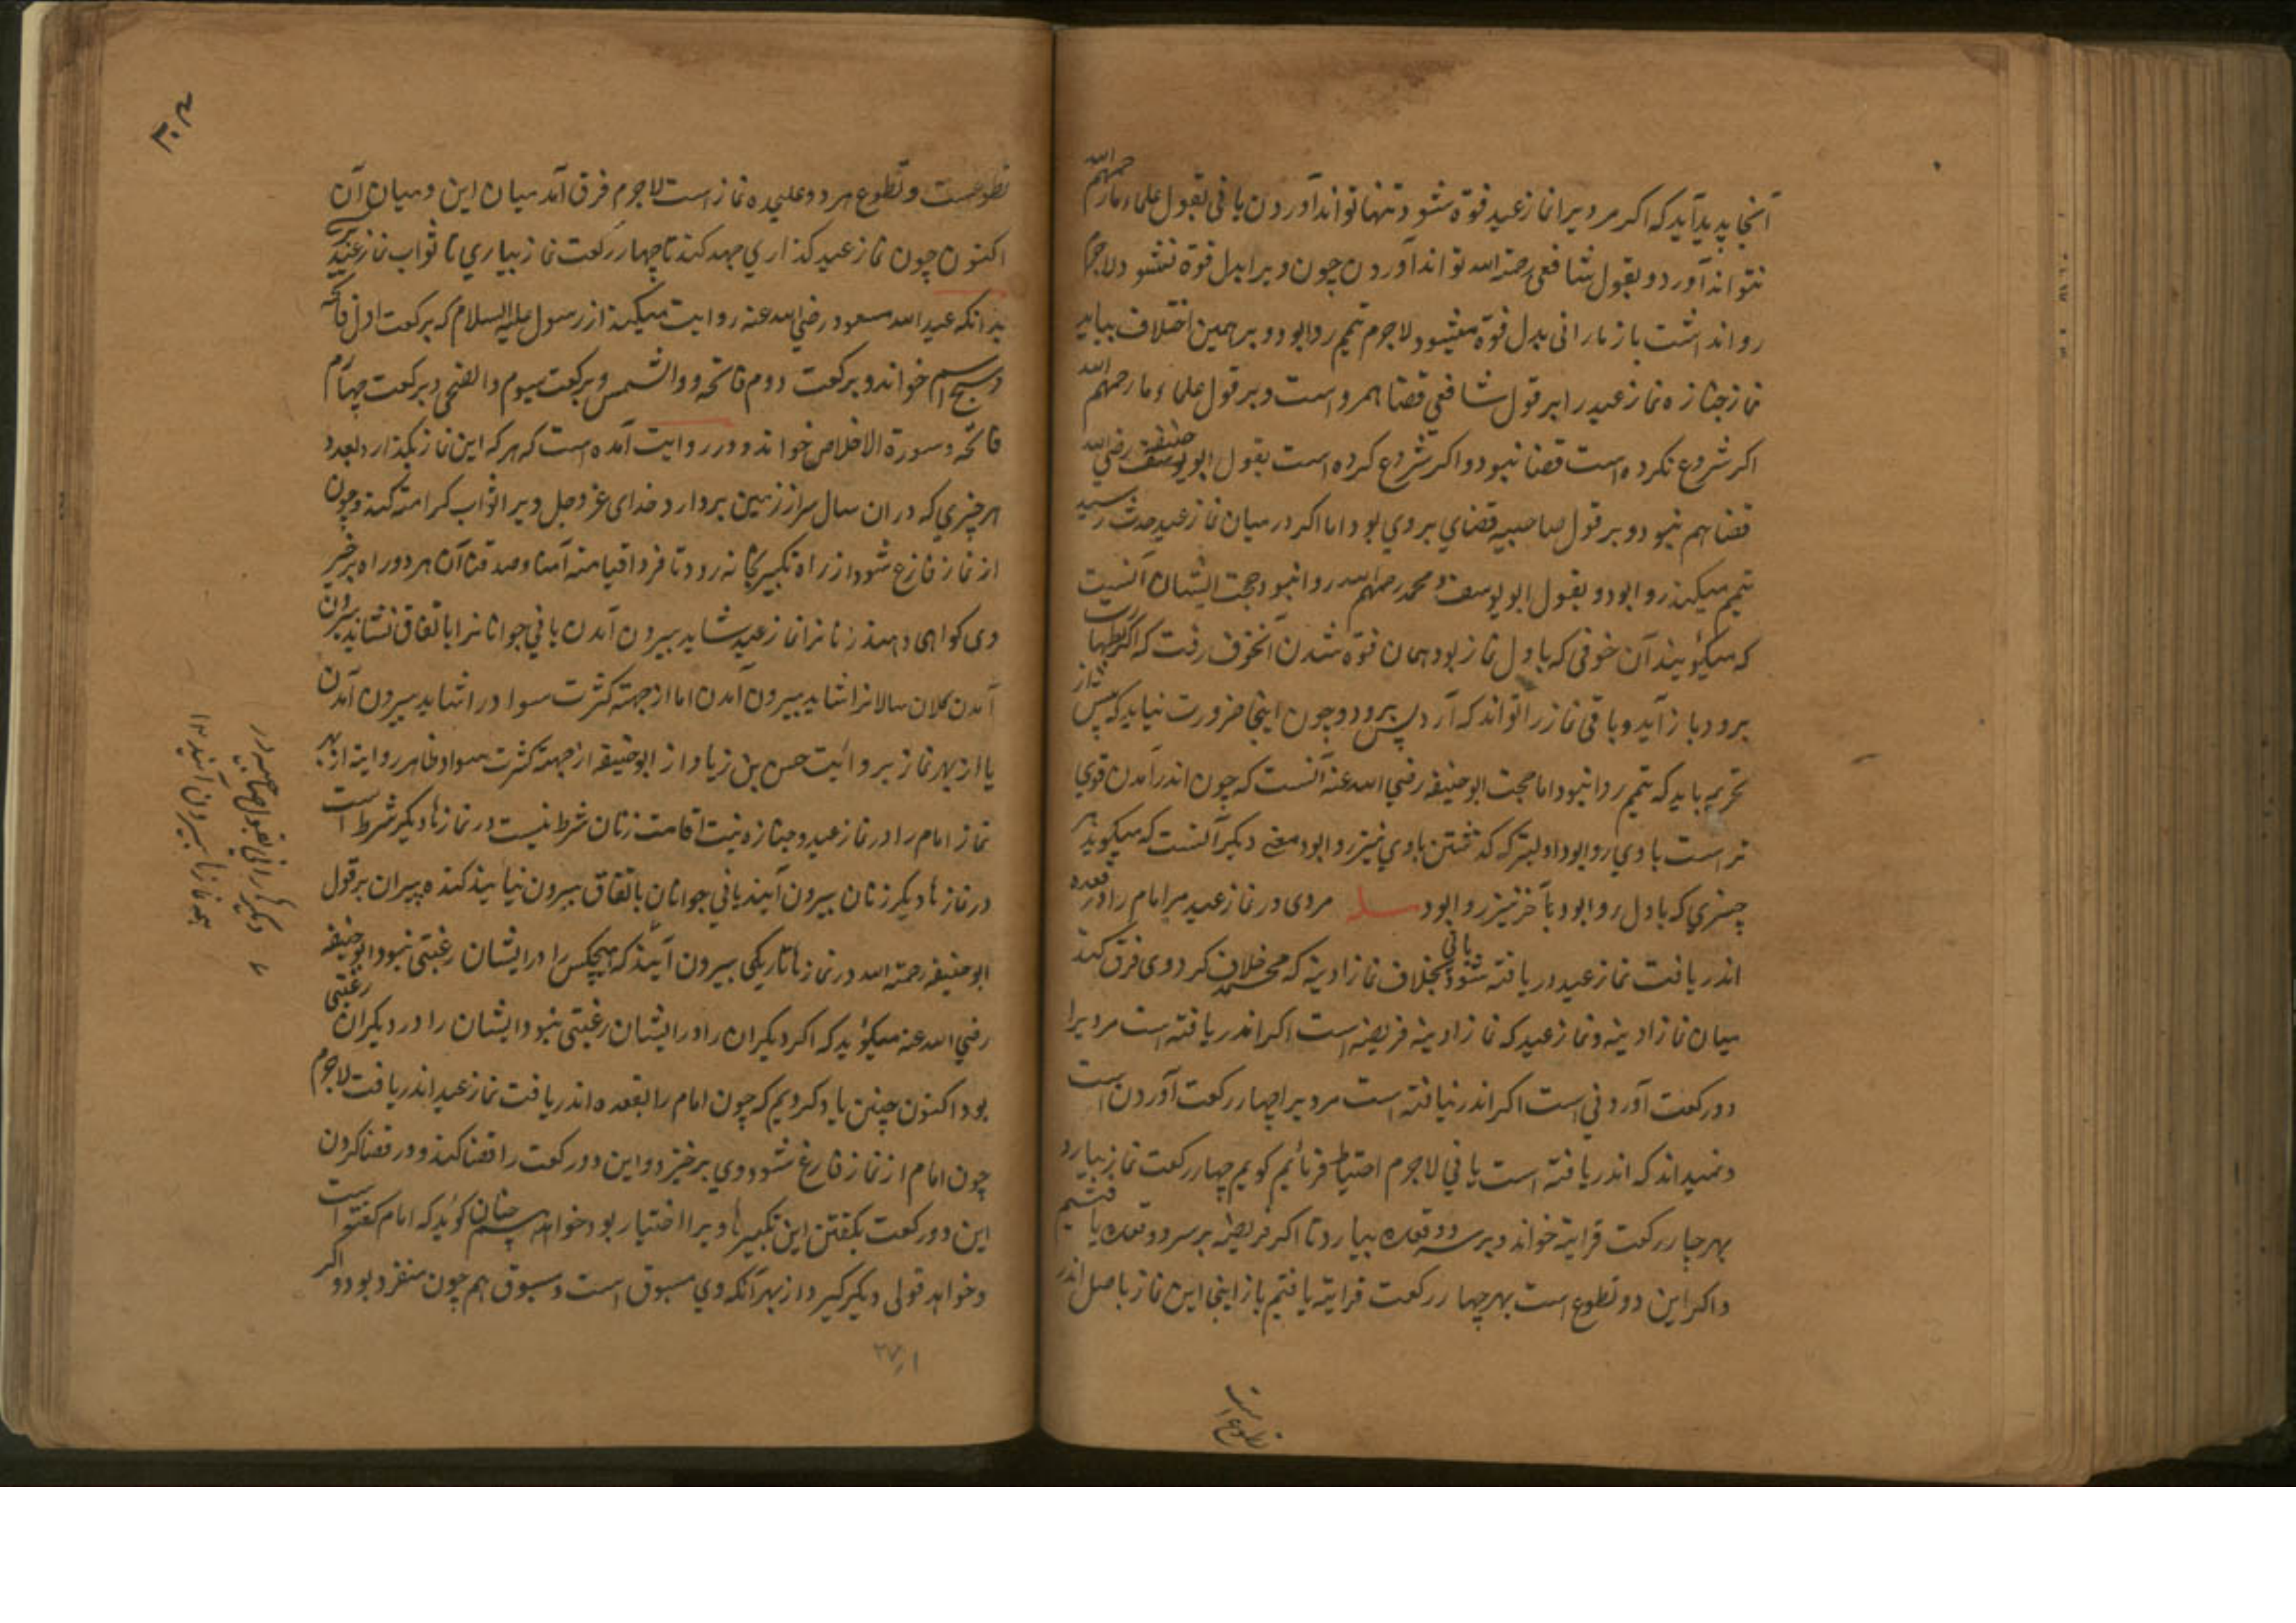 آنجا پدید آید که اکر مر ویرا نماز عید فوة شود و تنها تواند آوردن یا نی بقول علماء ما رحمهم الله
نتواند آورد و بقول شافعی رحمة الله تواند آوردن چون ویرا بدل فوة نشود لاجرم
روا نداشت باز ما را نی بدل فوة میشود لاجرم تیمم روا بود و بر همین اختلاف بیاید
نماز جنازه نماز عید را بر قول شافعی قضا هم رواست و بر قول علماء ما رحمهم الله
اکر شروع نکرده است قضا نبود و اکر شروع کرده است بقول ابو حنیفه رضی الله
قضا هم نبود و بر قول صاحبیه قضای بروی بود اما اکر در میان نماز عید حدث رسید
تیمم میکند روا بود و بقول ابو یوسف و محمد رحمهم الله روا نبود حجت ایشان آنست
که میکویند آن خوفی که باول نماز بود همان فوة شدن آنخوف رفت که اکر بطهارت
برود باز آید و باقی نماز را تواند که آرد پس برود و چون اینجا ضرورت نیاید که پس نماز
تحریمه باید که تیمم روا نبود اما حجت ابو حنیفه رضی الله عنه آنست که چون اندر آمدن قوی
تر است با وی روا بود اولیتر که کذشتن با وی نیز روا بود معنی دیکر آنست که میکوید هر
چیزی که باول روا بود بآخر نیز روا بود مسله مردی در نماز عید مر امام را در قعده
اندر یافت نماز عید دریافته شود یا نی بخلاف نماز ادینه که محمد خلاف کردوی فرق کند
میان نماز ادینه و نماز عید که نماز ادینه فریضه است اکر اندر یافته است مر ویرا
دو رکعت آوردنی است اکر اندر نیافته است مر ویرا چهار رکعت آوردن است
و نمیداند که اندر یافته است یا نی لاجرم احتیاط فرمائیم کویم چهار رکعت نماز بیارد
بهر چهار رکعت قرایة خواند و بر سر دو قعده بیارد تا اکر فریضه بر سر دو قعده یافتیم
و اکر این دو تطوع است بهر چهار رکعت قرایة یافتیم باز اینجا این نماز باصل اندر
تطوع است
۳۰۴
تطوعست و تطوع هر دو علیحده نماز است لاجرم فرق آمد میان این و میان آن
اکنون چون نماز عید کذاری جهد کند تا چهار رکعت نماز بیاری تا ثواب نماز عید
بدانکه عبد الله مسعود رضی الله عنه روایت میکند از رسول علیه السلام که برکعت اول فاتحه
و سبح اسم خواند و برکعت دوم فاتحه و والشمس و برکعت سیوم والضحی و برکعت چهارم
فاتحه و سورة الاخلاص خواند و در روایت آمده است که هر که این نماز بکذارد بعدد
هر چیزی که در ان سال سر از زمین بردارد خدای عز و جل ویرا ثواب کرامة کند و چون
از نماز فارغ شود از راه تکبیر بخانه رود تا فردا قیامة آمنا و صدقنا آن هر دو راه بر خیر
وی کواهی دهند زنانرا نماز عید شاید بیرون آمدن یا نی جوانانرا باتفاق نشاید بیرون
آمدن کلان سالانرا شاید بیرون آمدن اما از جهة کثرت سواد را شاید بیرون آمدن
یا از بهر نماز بروایت حسن بن زیاد از ابو حنیفه از جهة کثرت سواد ظاهر روایة از بهر
نماز امام را در نماز عید و جنازه نیت اقامت زنان شرط نیست در نمازها دیکر شرط است
در نمازها دیکر زنان بیرون آیند یا نی جوانان باتفاق بیرون نیایند کنده پیران بر قول
ابو حنیفه رحمة الله در نمازها تاریکی بیرون آیند که هیچکس را در ایشان رغبتی نبود ابو حنیفه
رضی الله عنه میکوید که اکر دیکران را در ایشان رغبتی نبود ایشان را در دیکران رغبتی
بود اکنون چنین یاد کردیم که چون امام را بقعده اندر یافت نماز عید اندر یافت لاجرم
چون امام از نماز فارغ شود وی برخیزد و این دو رکعت را قضا کند و در قضا کردن
این دو رکعت بکفتن این تکبیرها ویرا اختیار بود خواهد همچنان کوید که امام کفته است
و خواهد قولی دیکر کیرد از بهر آنکه وی مسبوق است و مسبوق هم چون منفرد بود و اکر
دیکر را نی بقول صاحبیه در
همه نمازها بیرون آیند ۱۲